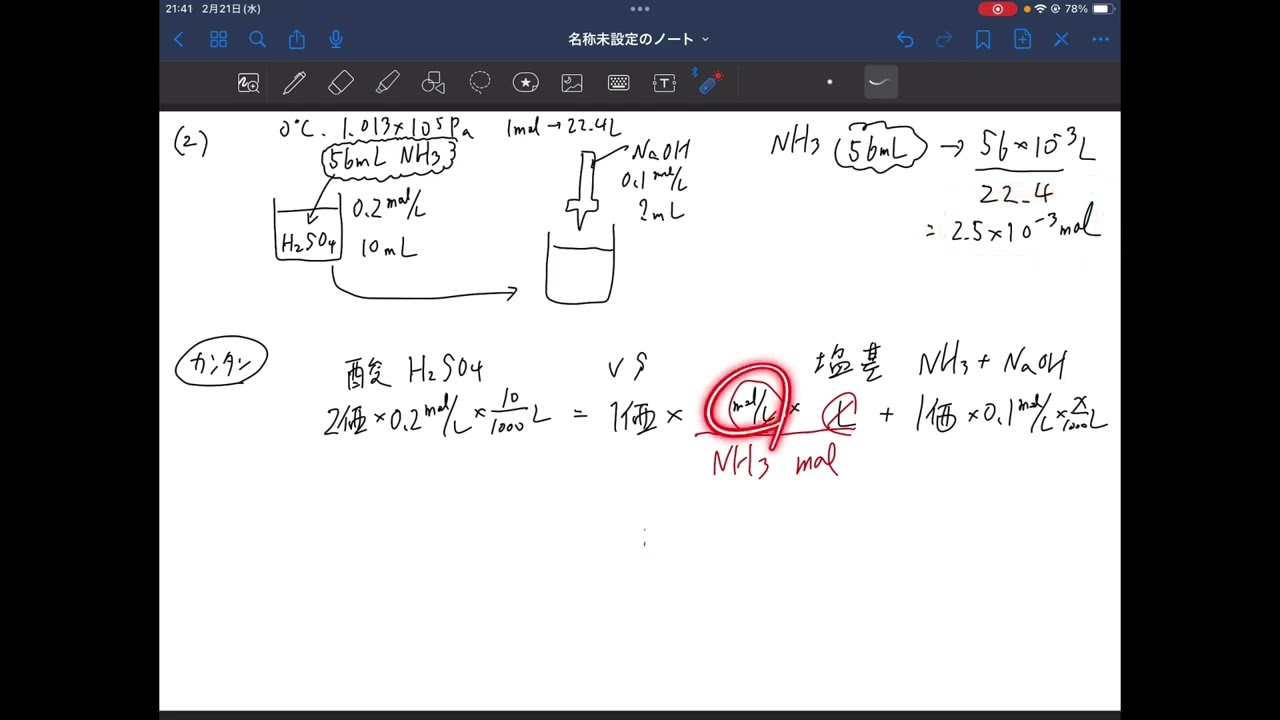 21:41 2月21日(水)
78%
名称未設定のノート
(2)
0℃. 1.013×10⁵Pa
1mol→22.4L
56mL NH₃
NaOH
0.1mol/L
2mL
0.2mol/L
H₂SO₄
10mL
NH₃ 56mL → 56×10⁻³L
22.4
= 2.5×10⁻³mol
カンタン
酸 H₂SO₄ VS 塩基 NH₃+NaOH
2価×0.2mol/L×10/1000L = 1価× mol/L × L + 1価×0.1mol/L×x/1000L
NH₃ mol